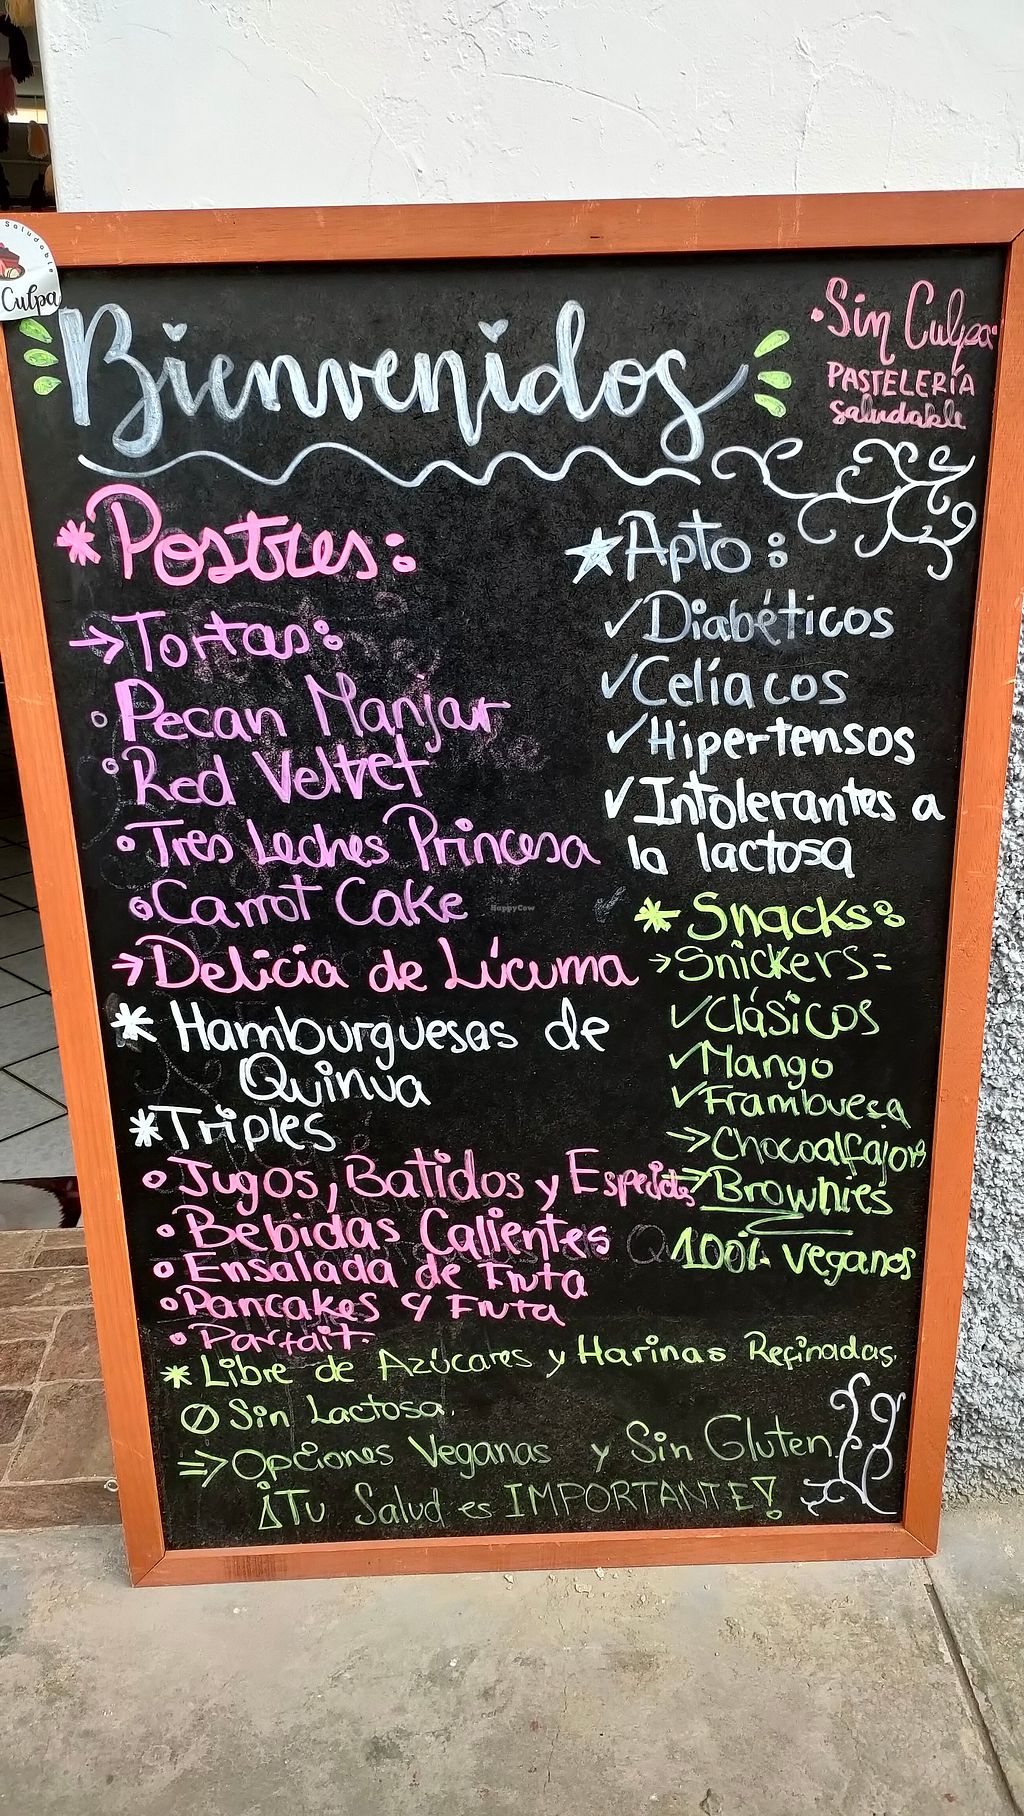 Saludable
Culpa
Bienvenidos
Sin Culpa
PASTELERÍA
saludable
* Postres:
→ Tortas:
Pecan Manjar
Red Velvet
Tres Leches Princesa
Carrot Cake
→ Delicia de Lúcuma
* Hamburguesas de
Quinua
* Triples
Jugos, Batidos y
Bebidas Calientes
Ensalada de Fruta
Pancakes y Fruta
Parfait
Apto:
✓ Diabéticos
✓ Celíacos
✓ Hipertensos
✓ Intolerantes a
la lactosa
* Snacks:
→ Snickers=
✓ Clásicos
✓ Mango
✓ Frambuesa
→ Chocoalfajores
→ Brownies
100% veganos
* Libre de Azúcares y Harinas Refinadas.
Sin Lactosa.
⇒ Opciones Veganas y Sin Gluten
¡Tu Salud es IMPORTANTE!
HappyCow